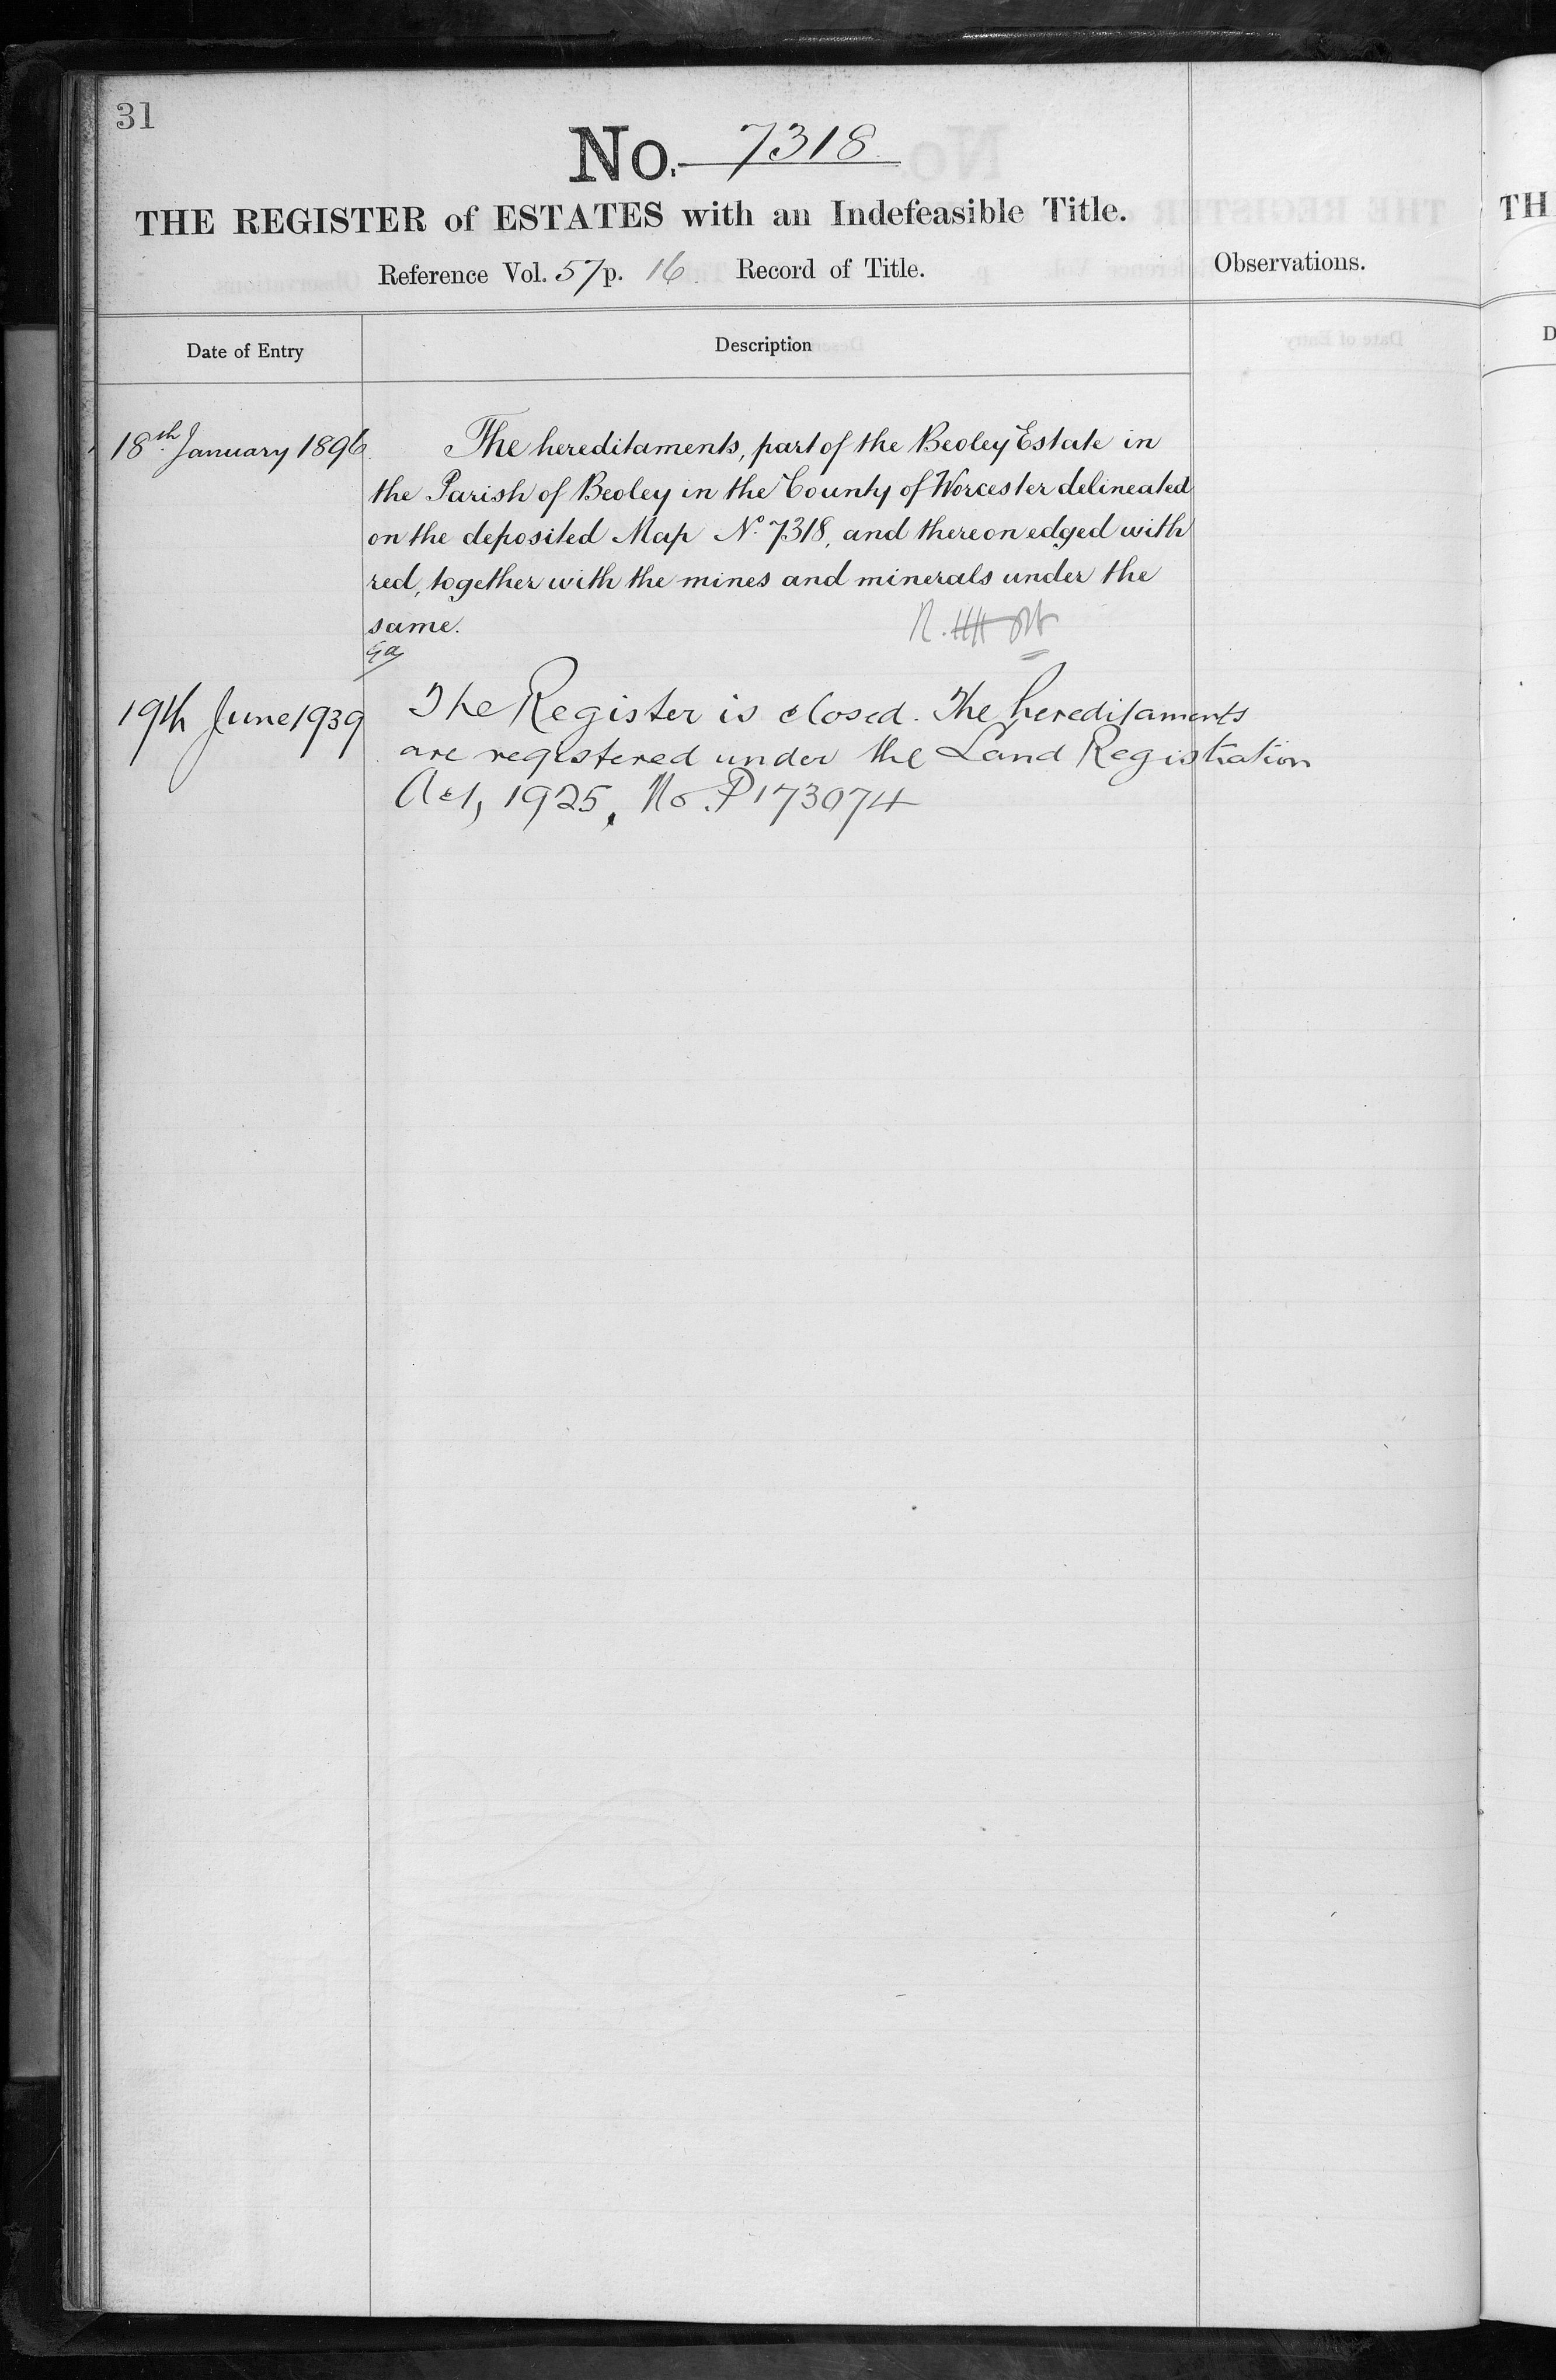 31
No. 7318
THE REGISTER of ESTATES with an Indefeasible Title.
Reference Vol. 57 p. 16. Record of Title.
Observations.
Date of Entry
Description
18th January 1896.
The hereditaments, part of the Beoley Estate in
the Parish of Beoley in the County of Worcester delineated
on the deposited Map No. 7318, and thereon edged with
red, together with the mines and minerals under the
same.
19th June 1939
The Register is closed. The hereditaments
are registered under the Land Registration
Act, 1925, No. P173074
TH
D